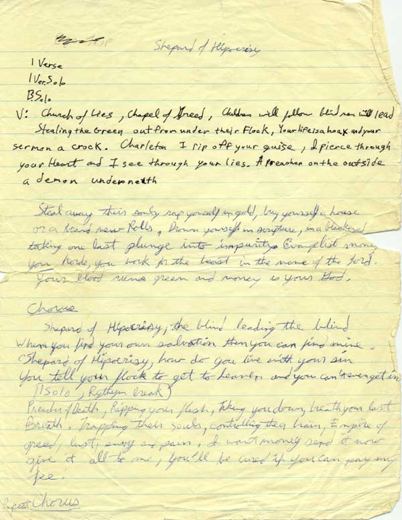 Shepard of Hipocrisy
1 Verse
1 Ver. Solo
B. Solo
V: Church of Lies, Chapel of Greed, Children will follow blind man will lead
Stealing the Green out from under their Flock, Your life is a hoax and your
sermon a crock. Charleton I rip off your guise, I pierce through
your Heart and I see through your Lies. A preacher on the outside
a demon underneath
Steal away their souls, rap yourself in gold, buy yourself a house
or a brand new Rolls, Drown yourself in scripture,
taking one last plunge into impurity. Evangelist money
you hoard, you work for the beast in the name of the Lord.
Your blood runs green and money is your God.
Chorus
Shepard of Hipocrisy, the blind leading the blind
When you find your own salvation then you can find mine.
Shepard of Hipocrisy, how do you live with your sin
You tell your flock to get to heaven and you can't even get in
(Solo, Rythym break)
of death, Ripping your flesh, Taking you down, breath your last
Breath. Trapping their souls, controlling their brain, Empire of
greed, lust, envy and pain, I want money send it now
give it all to me, you'll be cured if you can pay my
fee.
Repeat Chorus